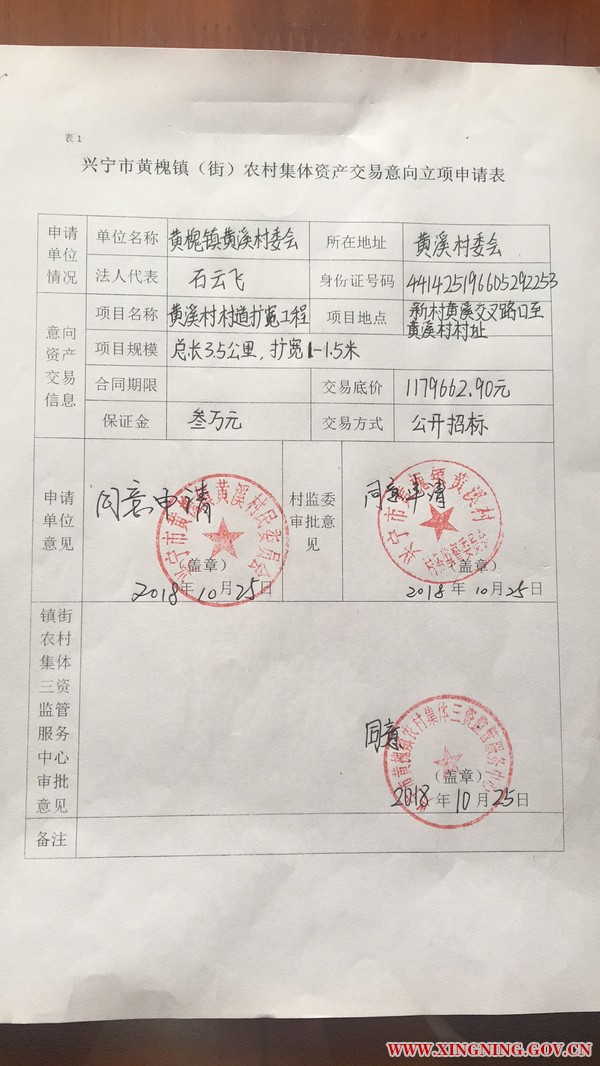 表1
兴宁市黄槐镇（街）农村集体资产交易意向立项申请表
申请单位情况
单位名称 黄槐镇黄溪村委会 所在地址 黄溪村委会
法人代表 石云飞 身份证号码 441425196605292253
意向资产交易信息
项目名称 黄溪村村道扩宽工程 项目地点 新村黄溪交叉路口至
黄溪村村址
项目规模 总长3.5公里，扩宽1-1.5米
合同期限 交易底价 1179662.90元
保证金 叁万元 交易方式 公开招标
申请单位意见
同意申请
兴宁市黄槐镇黄溪村民委员会
（盖章）
2018年10月25日
村监委审批意见
同意申请
兴宁市黄槐镇黄溪村
（盖章）
2018年10月25日
镇街农村集体三资监管服务中心审批意见
同意
市黄槐镇农村集体三资监管服务中心
（盖章）
2018年10月25日
备注
WWW.XINGNING.GOV.CN